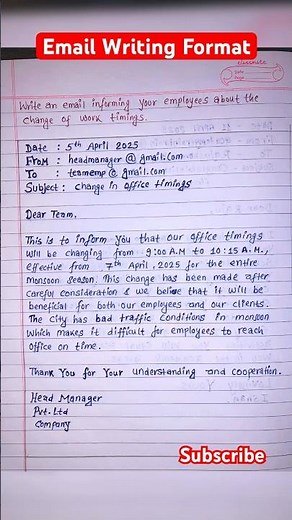 Email Writing Format
classmate
Date
Page
Write an email informing your employees about the
change of work timings.
Date : 5th April 2025
From : headmanager @ gmail.com
To : teamemp @ gmail.com
Subject : change in office timings
Dear Team,
This is to inform you that our office timings
will be changing from 9:00 A.M to 10:15 A.M.,
effective from 7th April, 2025 for the entire
monsoon season. This change has been made after
careful consideration & we believe that it will be
beneficial for both our employees and our clients.
The city has bad traffic conditions in monsoon
which makes it difficult for employees to reach
office on time.
Thank You for Your understanding and cooperation.
Head Manager
Pvt. Ltd
Company
Subscribe